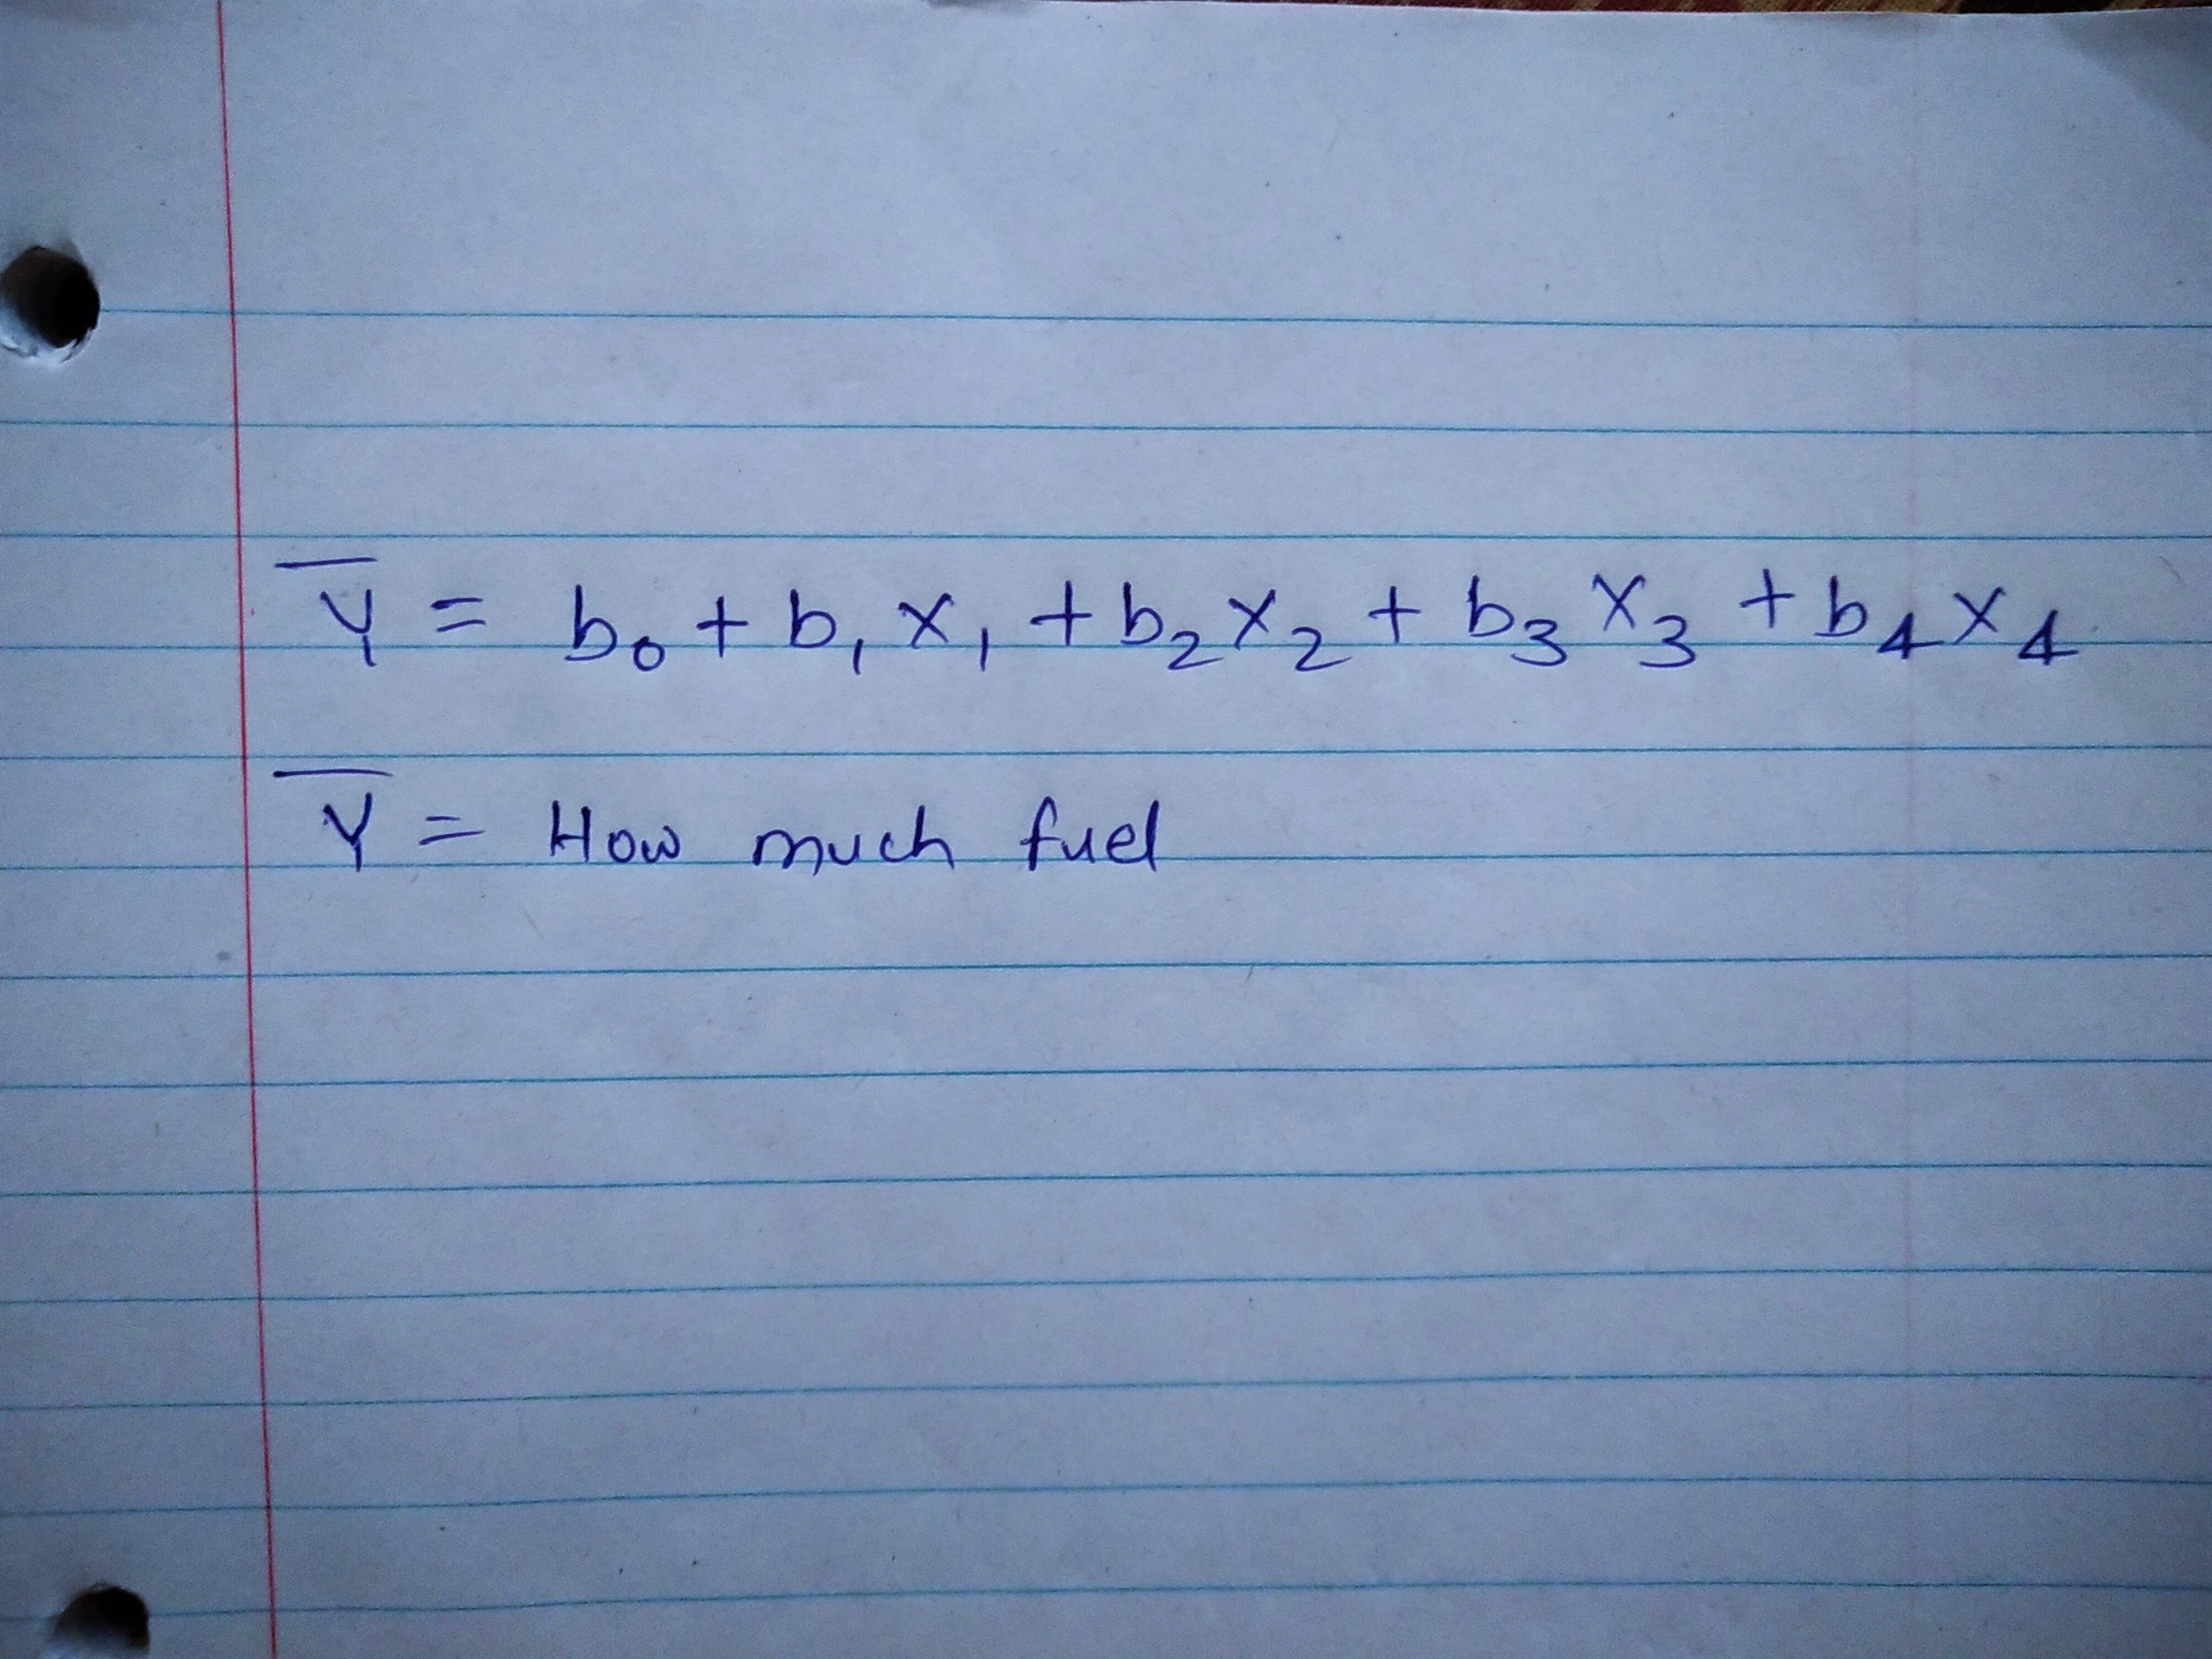 Y̅ = b₀ + b₁ x₁ + b₂ x₂ + b₃ x₃ + b₄ x₄
Y̅ = How much fuel